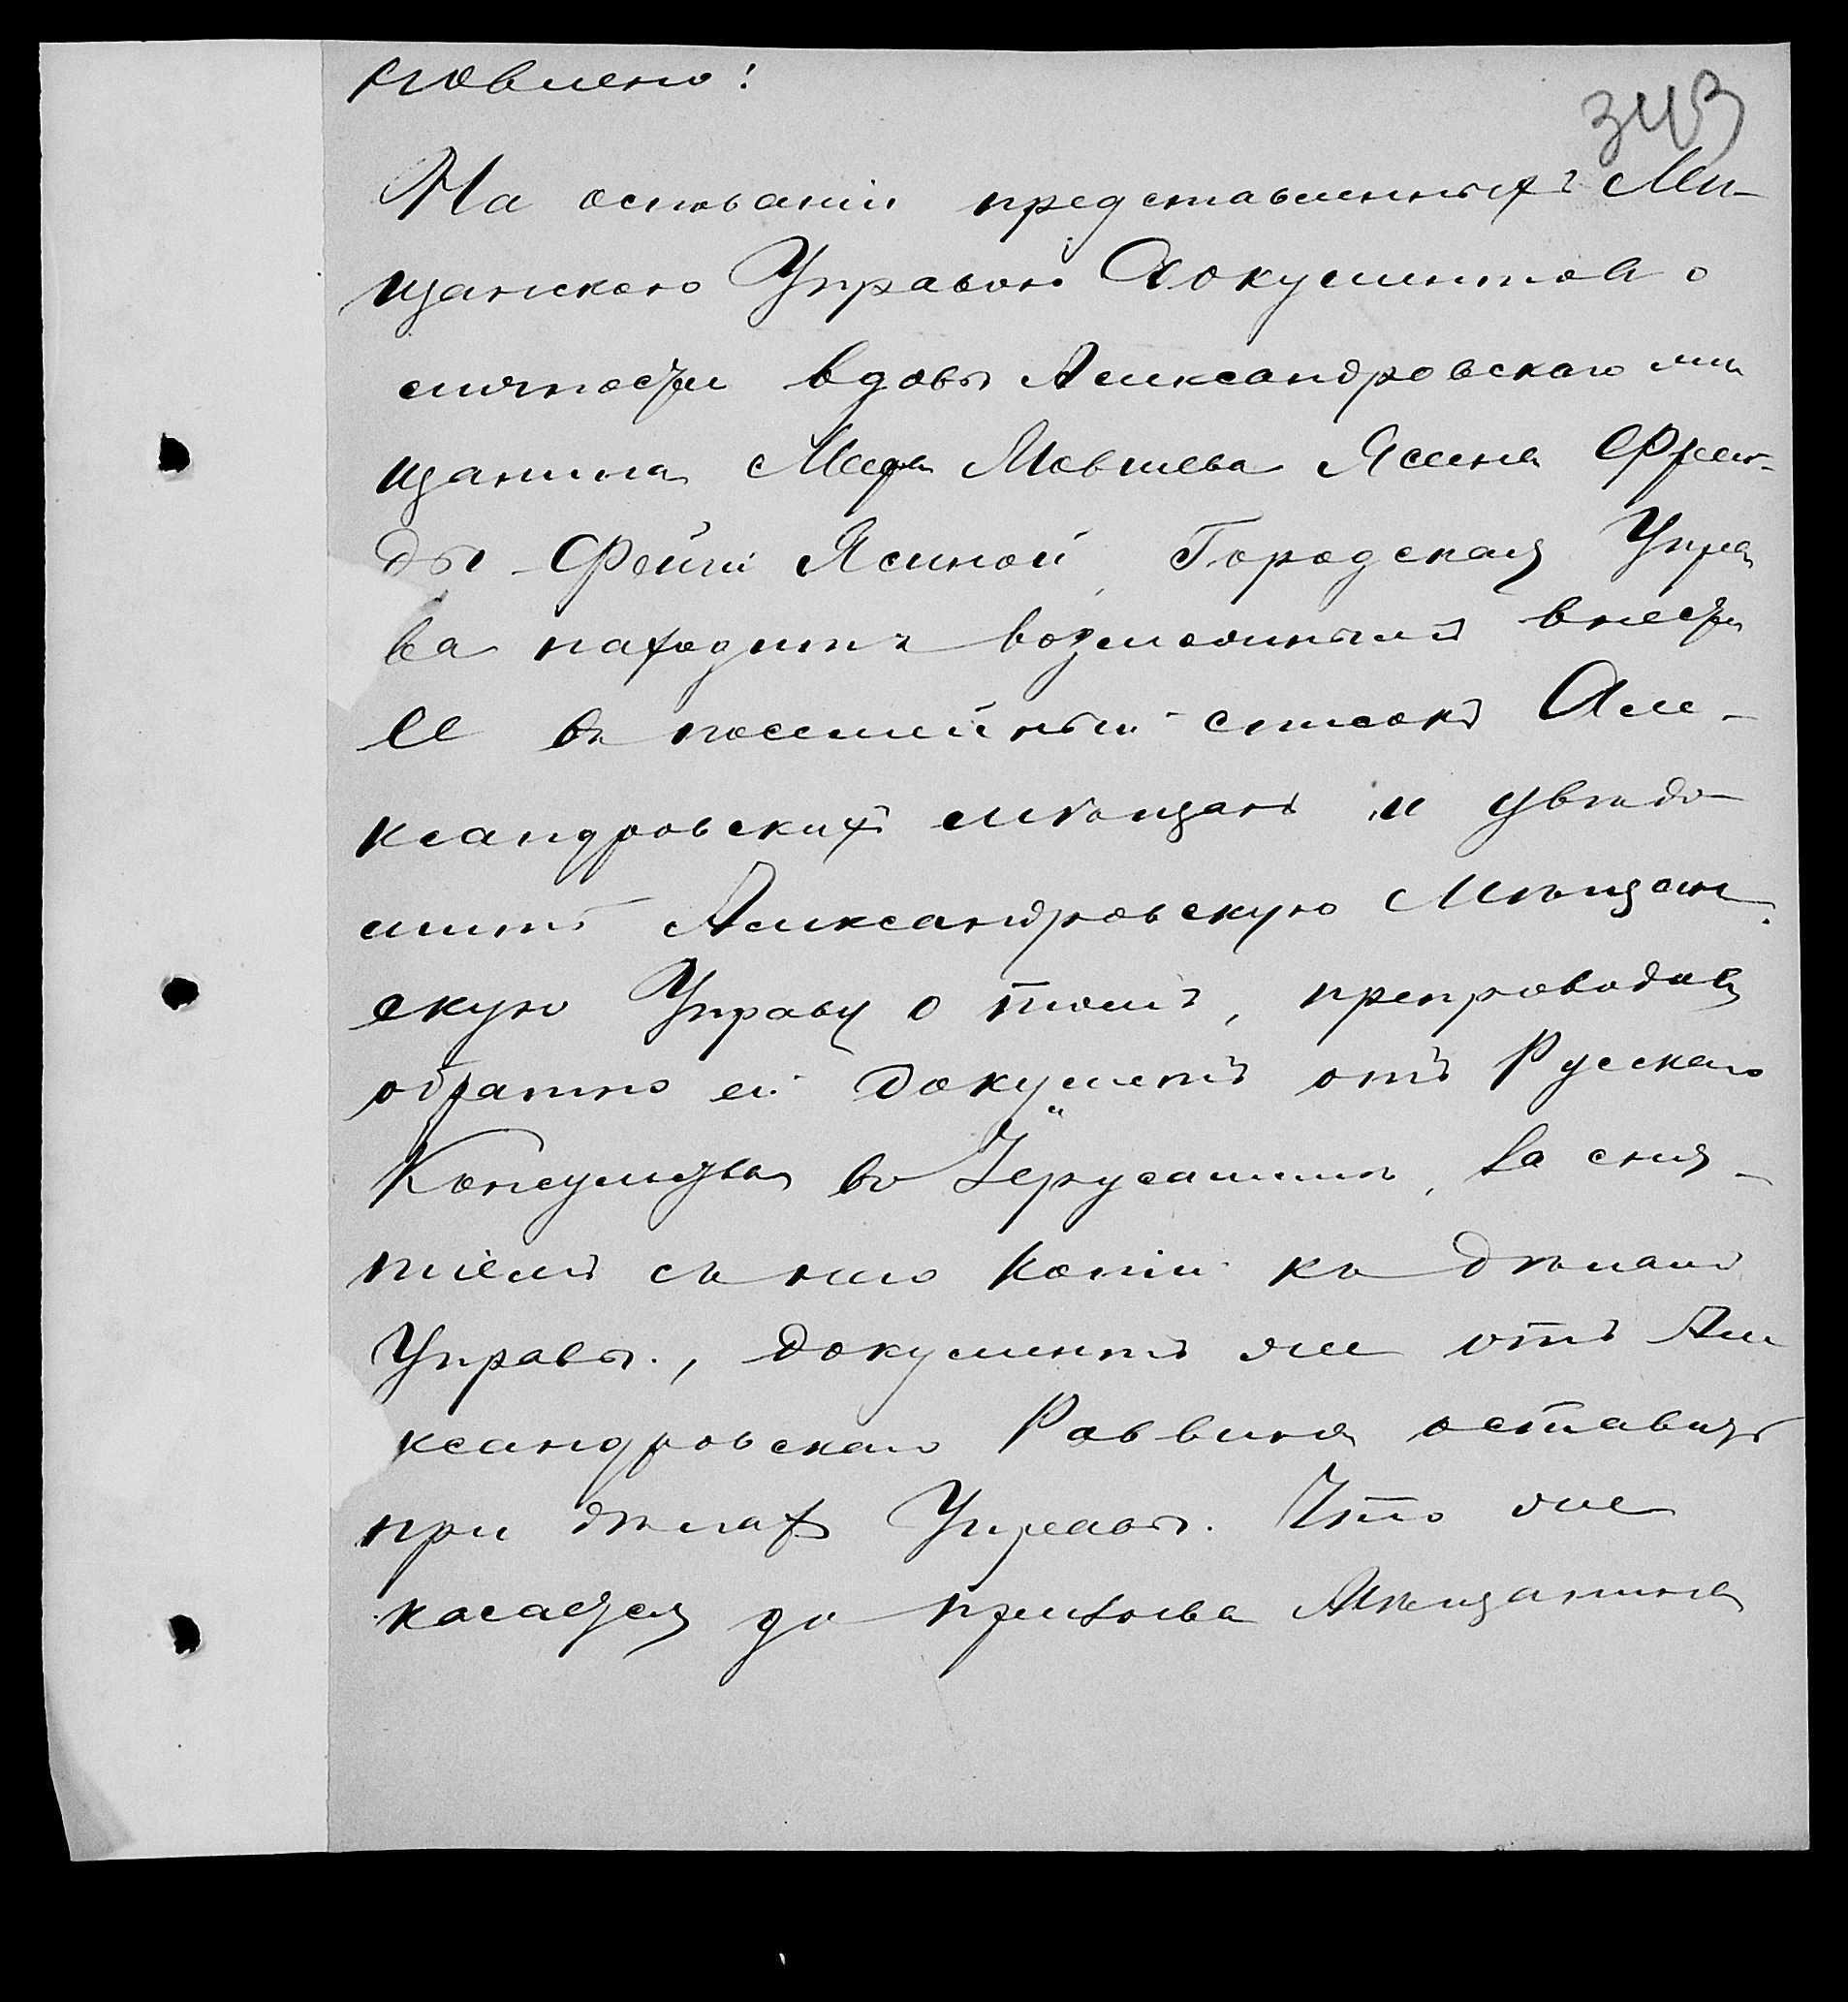 новлено:
343
На основаніи представленныхъ Мѣ-
щанскою Управою документовъ о
личности вдовы Александровскаго мѣ
щанина Мовшева Ясина Фрей-
ды Фейги Ясиной, Городская Упра
ва находитъ возможнымъ внести
ее въ посемейный списокъ Але-
ксандровскихъ мѣщанъ и увѣдо-
мить Александровскую Мѣщан-
скую Управу о томъ, препроводивъ
обратно ей документъ отъ Русскаго
Консульства въ Іерусалимѣ, за сня-
тіемъ съ него копіи къ дѣламъ
Управы, документъ же отъ Але
ксандровскаго Раввина оставить
при дѣлахъ Управы. Что же
касается до призыва Мѣщанина